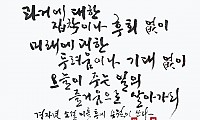 과거에 대한
집착이나 후회 없이
미래에 대한
두려움이나 기대 없이
오늘이 주는 일의
즐거움으로 살아가리